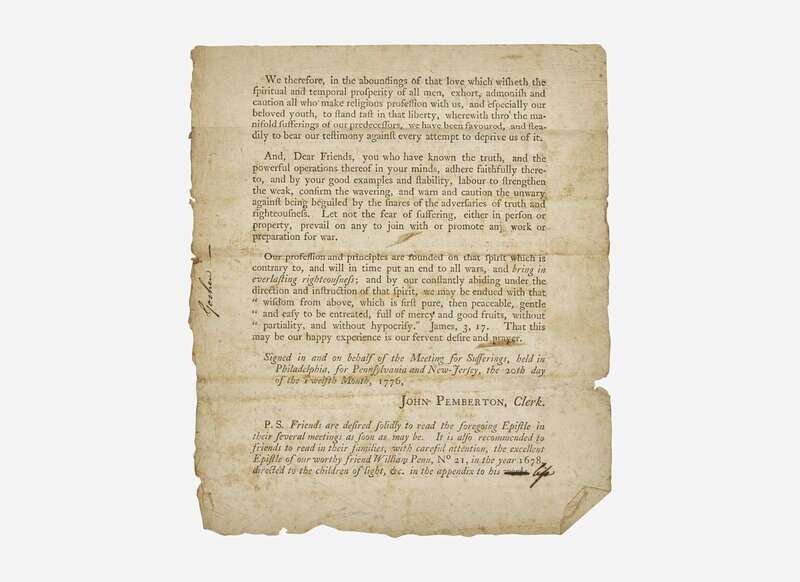 We therefore, in the aboundings of that love which wiſheth the
ſpiritual and temporal proſperity of all men, exhort, admoniſh and
caution all who make religious profeſſion with us, and eſpecially our
beloved youth, to ſtand faſt in that liberty, wherewith thro' the ma-
nifold ſufferings of our predeceſſors, we have been favoured, and ſtea-
dily to bear our teſtimony againſt every attempt to deprive us of it.
And, Dear Friends, you who have known the truth, and the
powerful operations thereof in your minds, adhere faithfully there-
to, and by your good examples and ſtability, labour to ſtrengthen
the weak, confirm the wavering, and warn and caution the unwary
againſt being beguiled by the ſnares of the adverſaries of truth and
righteouſneſs. Let not the fear of ſuffering, either in perſon or
property, prevail on any to join with or promote any work or
preparation for war.
Our profeſſion and principles are founded on that ſpirit which is
contrary to, and will in time put an end to all wars, and bring in
everlaſting righteouſneſs; and by our conſtantly abiding under the
direction and inſtruction of that ſpirit, we may be endued with that
“ wiſdom from above, which is firſt pure, then peaceable, gentle
“ and eaſy to be entreated, full of mercy and good fruits, without
“ partiality, and without hypocriſy.” James, 3, 17. That this
may be our happy experience is our fervent deſire and prayer.
Signed in and on behalf of the Meeting for Sufferings, held in
Philadelphia, for Pennſylvania and New-Jerſey, the 20th day
of the Twelfth Month, 1776,
JOHN PEMBERTON, Clerk.
P. S. Friends are deſired ſolidly to read the foregoing Epiſtle in
their ſeveral meetings as ſoon as may be. It is alſo recommended to
friends to read in their families, with careful attention, the excellent
Epiſtle of our worthy friend William Penn, Nº 21, in the year 1678,
directed to the children of light, &c. in the appendix to his life